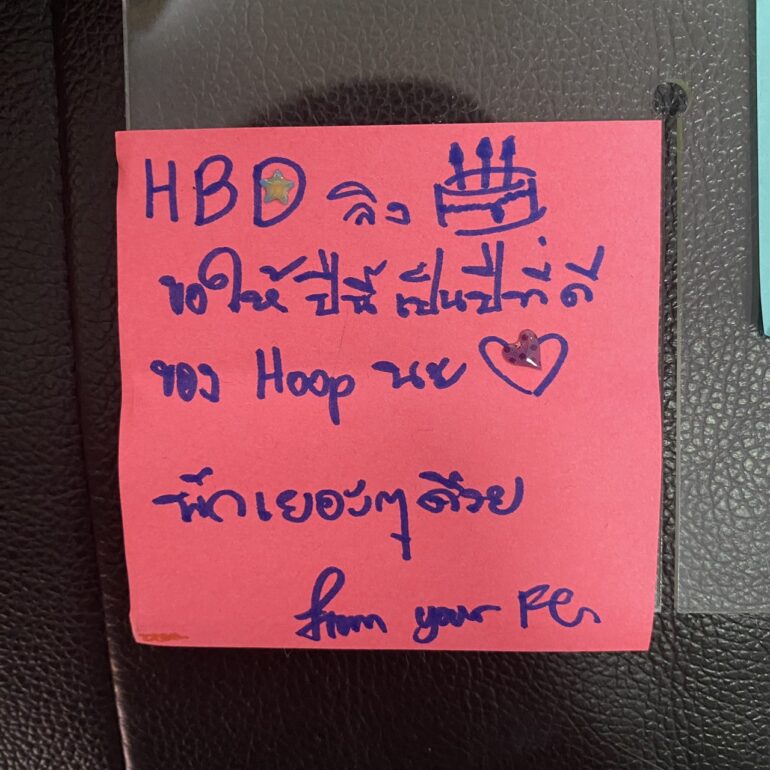 HBD ลิง
ขอให้ปีนี้เป็นปีที่ดี
ของ Hoop นะ
พักเยอะๆด้วย
from your FC